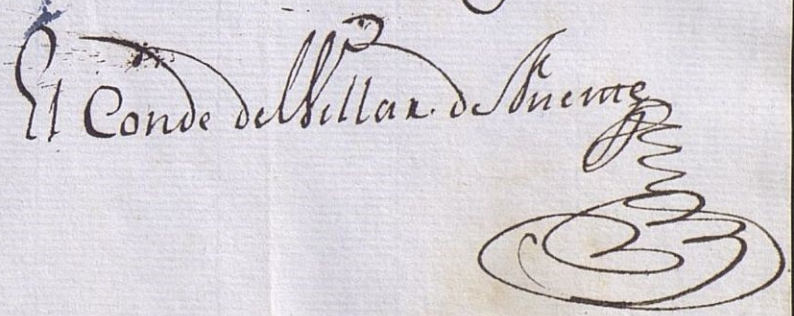 El Conde del Villar de Fuente